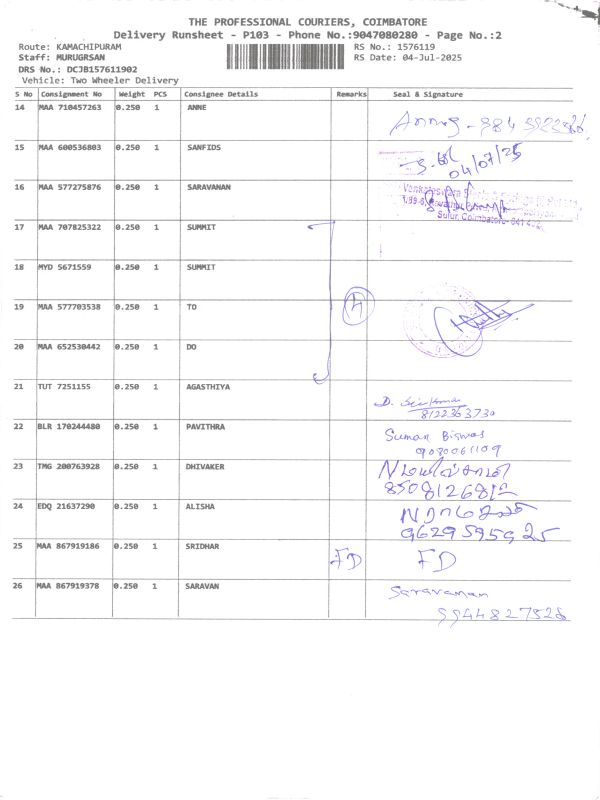 THE PROFESSIONAL COURIERS, COIMBATORE
Delivery Runsheet - P103 - Phone No.:9047080280 - Page No.:2
Route: KAMACHIPURAM
RS No.: 1576119
Staff: MURUGRSAN
RS Date: 04-Jul-2025
DRS No.: DCJB157611902
Vehicle: Two Wheeler Delivery
S No Consignment No Weight PCS Consignee Details Remarks Seal & Signature
14 MAA 710457263 0.250 1 ANNE
15 MAA 600536803 0.250 1 SANFIDS
04/07/25
16 MAA 577275876 0.250 1 SARAVANAN
Sulur, Coimbatore- 641 402
17 MAA 707825322 0.250 1 SUMMIT
18 MYD 5671559 0.250 1 SUMMIT
19 MAA 577703538 0.250 1 TO
4
20 MAA 652530442 0.250 1 DO
21 TUT 7251155 0.250 1 AGASTHIYA
8122363730
22 BLR 170244480 0.250 1 PAVITHRA
Suman Biswas
9080061109
23 TMG 200763928 0.250 1 DHIVAKER
8508126812
24 EDQ 21637290 0.250 1 ALISHA
9629595925
25 MAA 867919186 0.250 1 SRIDHAR FD FD
26 MAA 867919378 0.250 1 SARAVAN
Saravanan
9944827528